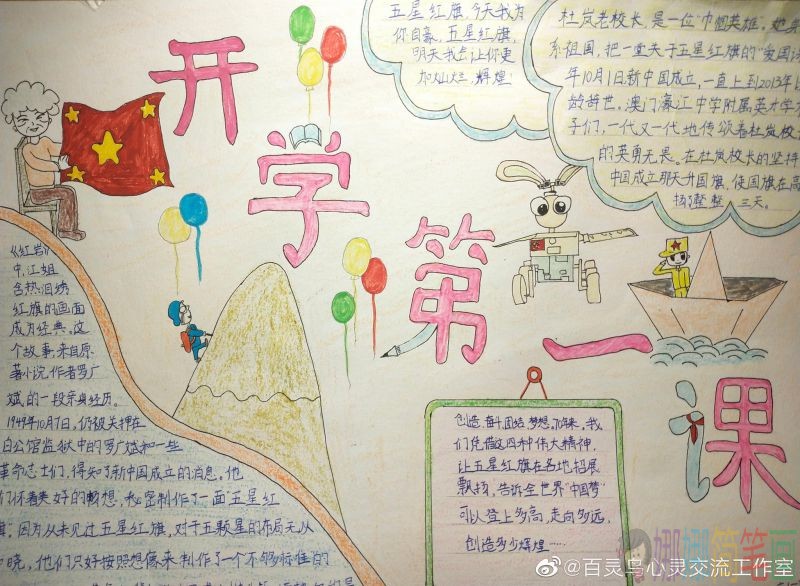 开学第一课
五星红旗，今天我为
你自豪，五星红旗，
明天我会让你更
加灿烂，辉煌！
杜岚老校长，是一位“巾帼英雄”。她
系祖国，把一堂关于五星红旗的“爱国
年10月1日新中国成立，一直上到2013年
龄辞世。澳门濠江中学附属英才学
子们，一代又一代地传颂着杜岚校
的英勇无畏。在杜岚校长的坚持
中国成立那天升国旗，使国旗在高
扬了整整 三天。
《红岩》
中，江姐
含热泪绣
红旗的画面
成为经典。这
个故事，来自原
著小说，作者罗广
斌的一段亲身经历。
1949年10月7日，仍被关押在
白公馆监狱中的罗广斌和一些
革命志士们，得知了新中国成立的消息。他
们怀着美好的畅想，秘密制作了一面“五星红
旗。因为从未见过五星红旗，对于五颗星的布局无从
晓，他们只好按照想像来制作了一个不够标准的
创造，奋斗，团结，梦想。70年来，我
们凭借这四种伟大精神，
让五星红旗在各地招展
飘扬，告诉全世界“中国梦”
可以登上多高，走向多远，
创造多少辉煌……
娜娜简笔画
@百灵鸟心灵交流工作室